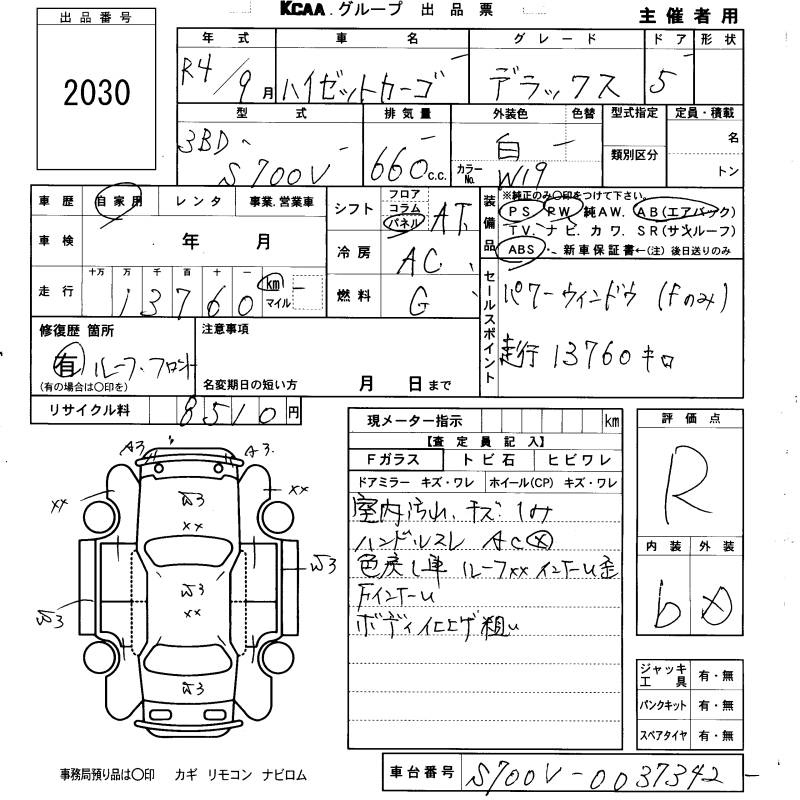 KCAA グループ 出品票
主催者用
出品番号
2030
年式 車名 グレード ドア 形状
R4/9月 ハイゼットカーゴ デラックス 5
型式 排気量 外装色 色替 型式指定 定員・積載
3BD-S700V 660 c.c. 白 名
カラーNo. W19 類別区分 トン
車歴 自家用 レンタ 事業,営業車
シフト フロア コラム パネル AT
装備品 ※純正のみ〇印をつけて下さい。
PS PW 純AW. AB(エアバック)
TV. ナビ. カワ. SR(サンルーフ)
ABS 新車保証書←(注)後日送りのみ
車検 年 月
冷房 AC
走行 十万 万 千 百 十 一
13760 km マイル
燃料 G
セールスポイント
パワーウィンドウ (Fのみ)
走行13760キロ
修復歴 箇所
有 ルーフ・フロント
(有の場合は〇印を)
注意事項
名変期日の短い方 月 日まで
リサイクル料 8510円
現メーター指示 km
【査定員記入】
Fガラス トビ石 ヒビワレ
ドアミラー キズ・ワレ ホイール(CP) キズ・ワレ
室内汚れ、キズ 1み
ハンドルスレ AC
色戻し車 ルーフxx インナーU歪
FインナーU
ボディ仕上ゲ粗い
評価点
R
内装 外装
b
A3 A3.
xx xx
W3
xx
W3 W3
xx
W3
W3
ジャッキ工具 有・無
パンクキット 有・無
スペアタイヤ 有・無
事務局預り品は〇印 カギ リモコン ナビロム
車台番号 S700V-0037342